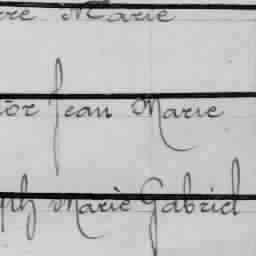 rre Marie
tor Jean Marie
ph Marie Gabriel